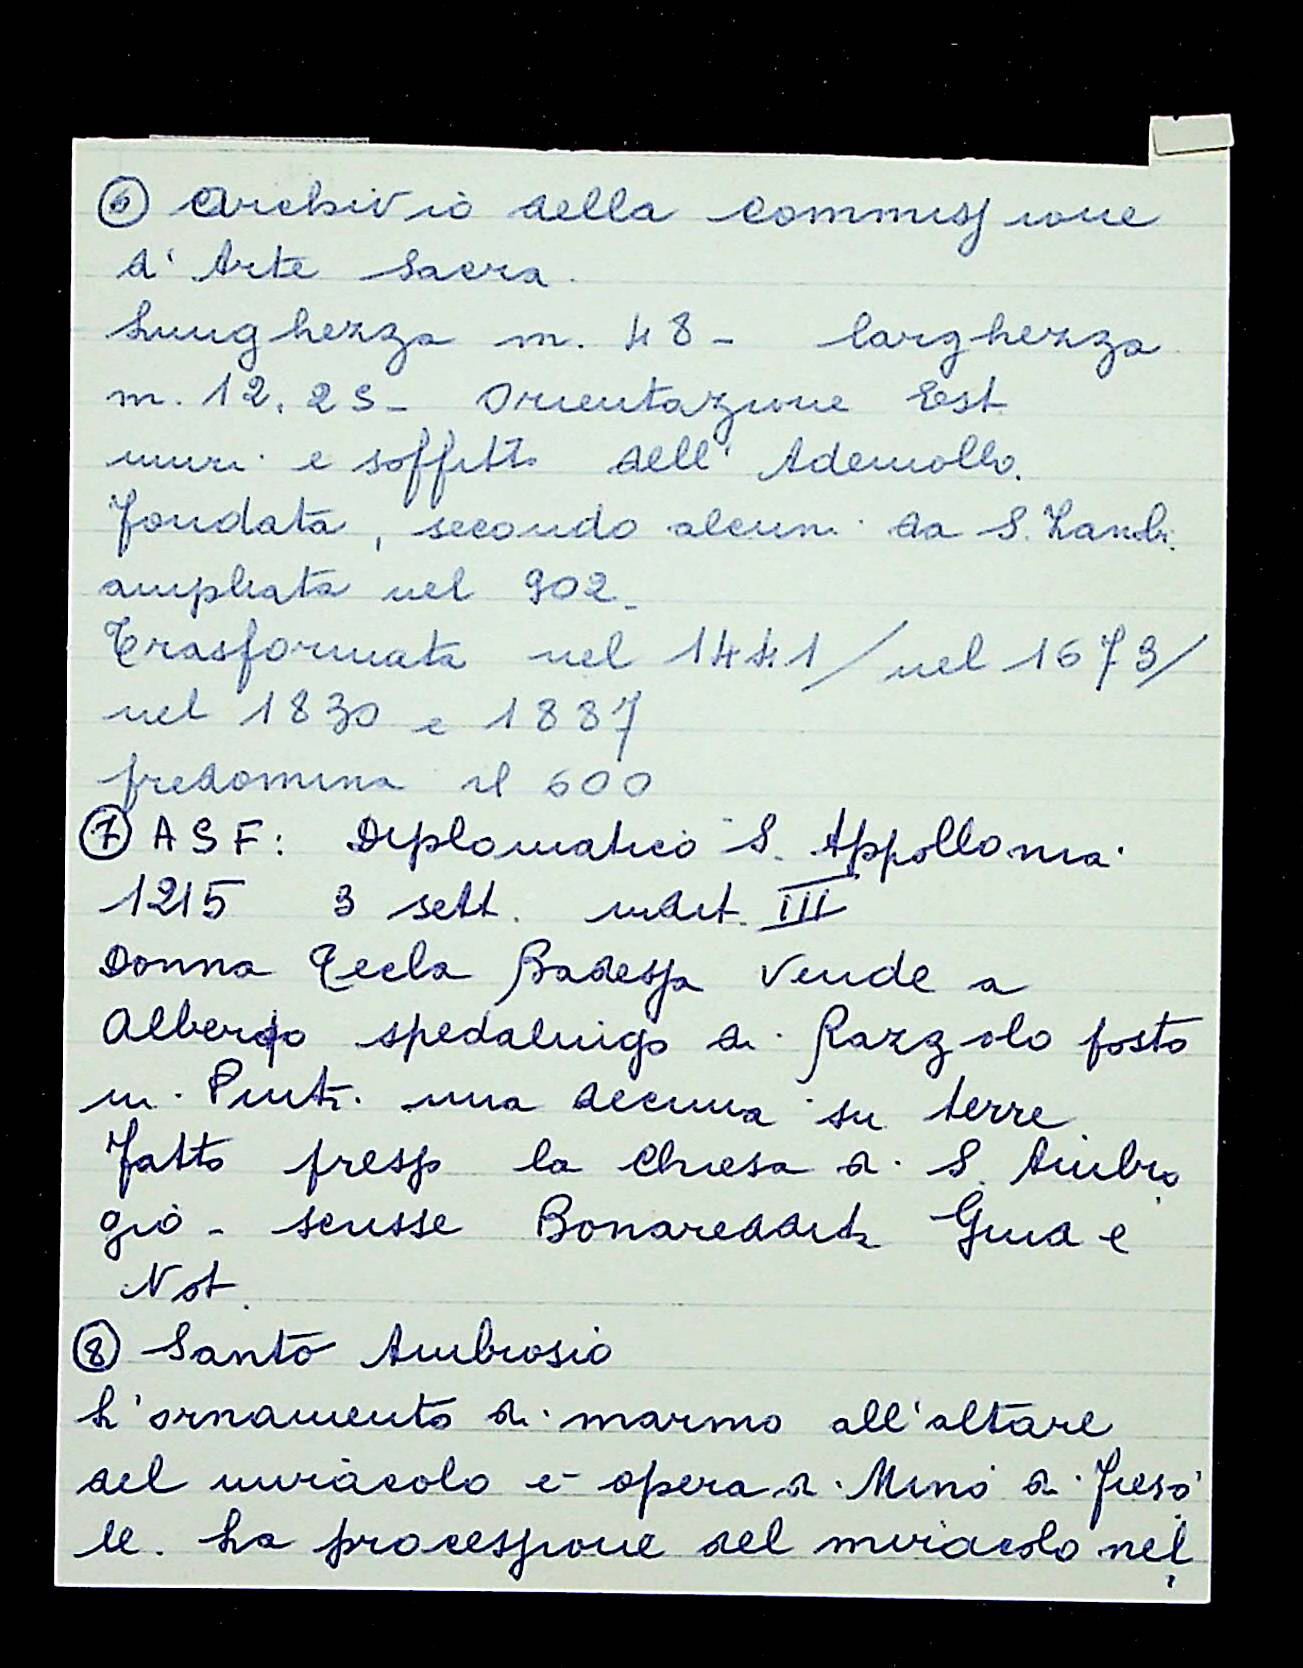 ⑥ Archivio della Commissione
d'Arte Sacra.
Lunghezza m. 48 - larghezza
m. 12.25 - Orientazione Est
muri e soffitto dell'Ademollo.
Fondata, secondo alcuni da S. Zanobi.
ampliata nel 902.
Trasformata nel 1441/ nel 1673/
nel 1830 e 1887
predomina il 600
⑦ ASF: Diplomatico S. Appollonia
1215 3 sett. indict. III
Donna Tecla Badessa vende a
Alberto spedalingo di Razzolo posto
in Pinti una decima su terre.
Fatto presso la Chiesa di S. Ambro
gio - scrisse Bonareddita Giud e
Not.
⑧ Santo Ambrosio
L'ornamento di marmo all'altare
del miracolo è opera di Mino di Fieso
le. La processione del miracolo nel